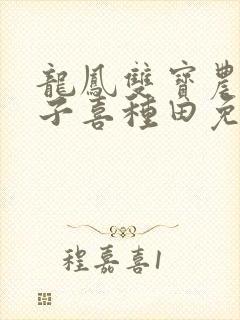 龍鳳雙寶農
子喜種田免
程嘉喜1